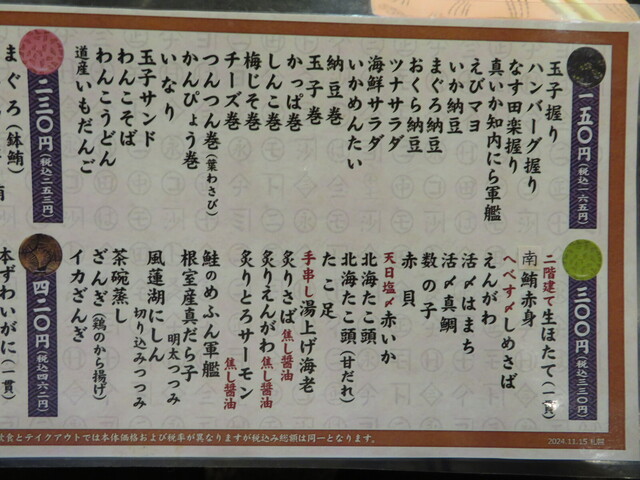 一五〇円(税込一六五円)
玉子握り
ハンバーグ握り
なす田楽握り
真いか知内にら軍艦
えびマヨ
いか納豆
まぐろ納豆
おくら納豆
ツナサラダ
海鮮サラダ
いかめんたい
納豆巻
玉子巻
かっぱ巻
しんこ巻
梅じそ巻
チーズ巻
つんつん巻(葉わさび)
かんぴょう巻
いなり
玉子サンド
わんこそば
わんこうどん
道産いもだんご
二三〇円(税込二五三円)
まぐろ(鉢鮪)
三〇〇円(税込三三〇円)
二階建て生ほたて(一貫)
南鮪赤身
へべす〆しめさば
えんがわ
活〆はまち
活〆真鯛
数の子
赤貝
天日塩〆赤いか
北海たこ頭
北海たこ頭(甘だれ)
たこ足
手串し湯上げ海老
炙りさば焦し醤油
炙りえんがわ焦し醤油
炙りとろサーモン焦し醤油
鮭のめふん軍艦
根室産真だら子
明太つつみ
風蓮湖にしん
切り込みつつみ
茶碗蒸し
ざんぎ(鶏のから揚げ)
イカざんぎ
四二〇円(税込四六二円)
本ずわいがに(一貫)
飲食とテイクアウトでは本体価格および税率が異なりますが税込み総額は同一となります。
2024.11.15 札幌